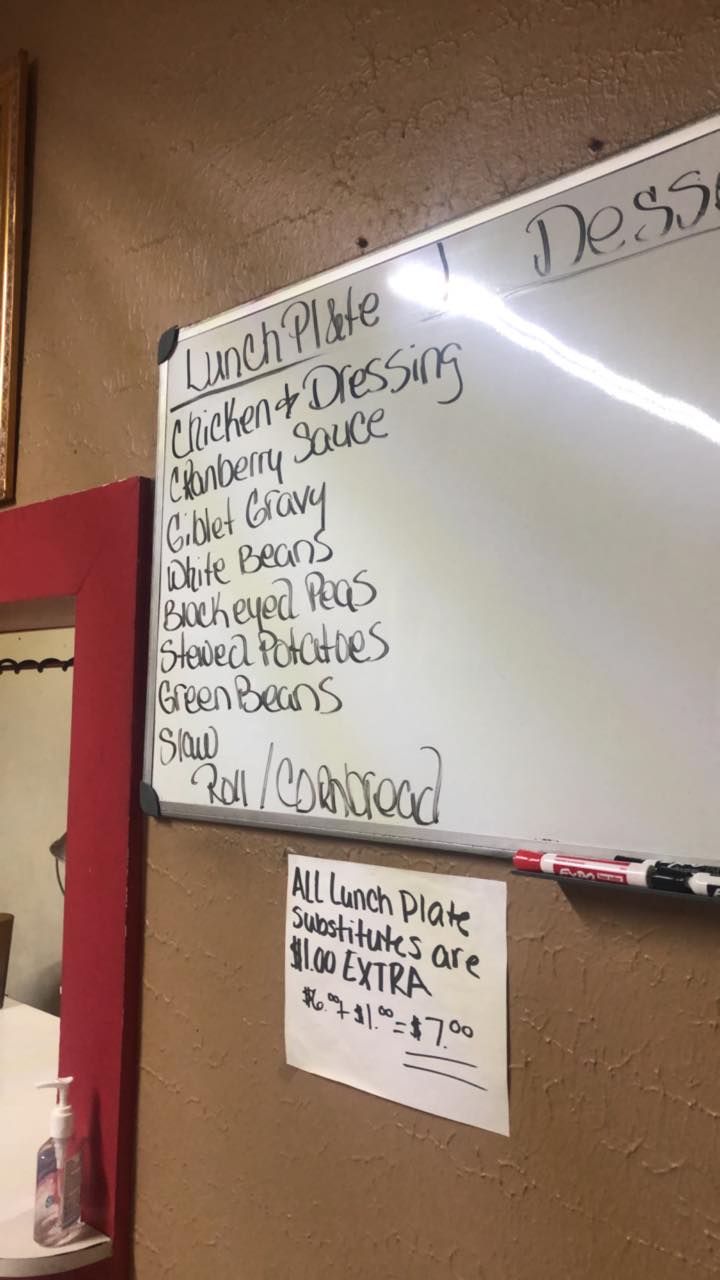 Lunch Plate
Desse
Chicken & Dressing
Cranberry Sauce
Giblet Gravy
White Beans
Blackeyed Peas
Stewed Potatoes
Green Beans
Slaw
Roll / Cornbread
EXPO
ALL Lunch Plate
Substitutes are
$1.00 EXTRA
$6.00 + $1.00 = $7.00